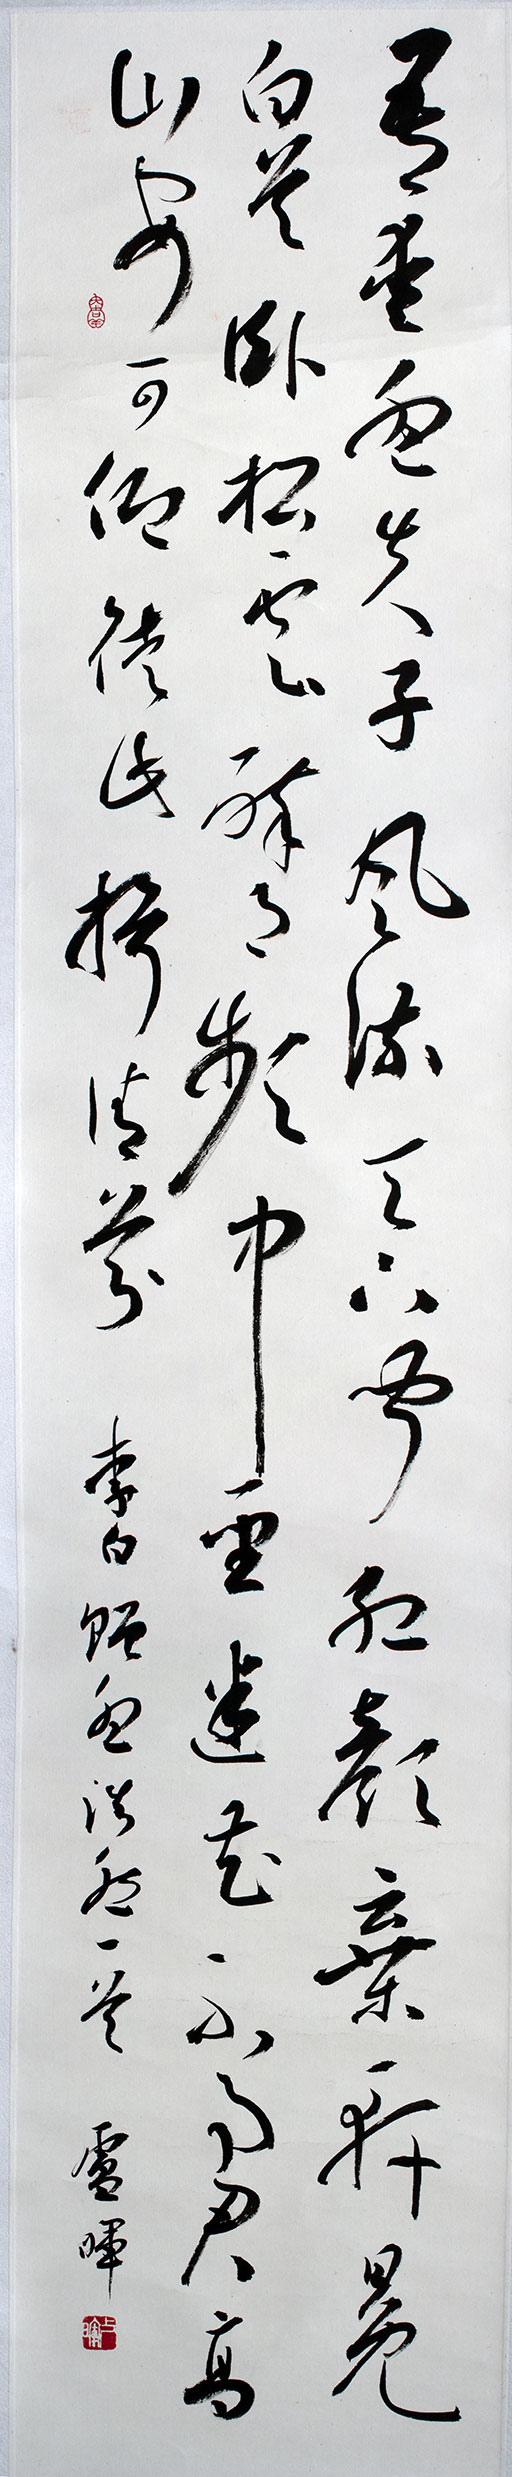 吾愛孟夫子風流天下聞紅顏棄軒冕
白首臥松雲醉月頻中聖迷花不事君高
山安可仰徒此揖清芬
李白贈孟浩然一首 盧暉
大吉羊